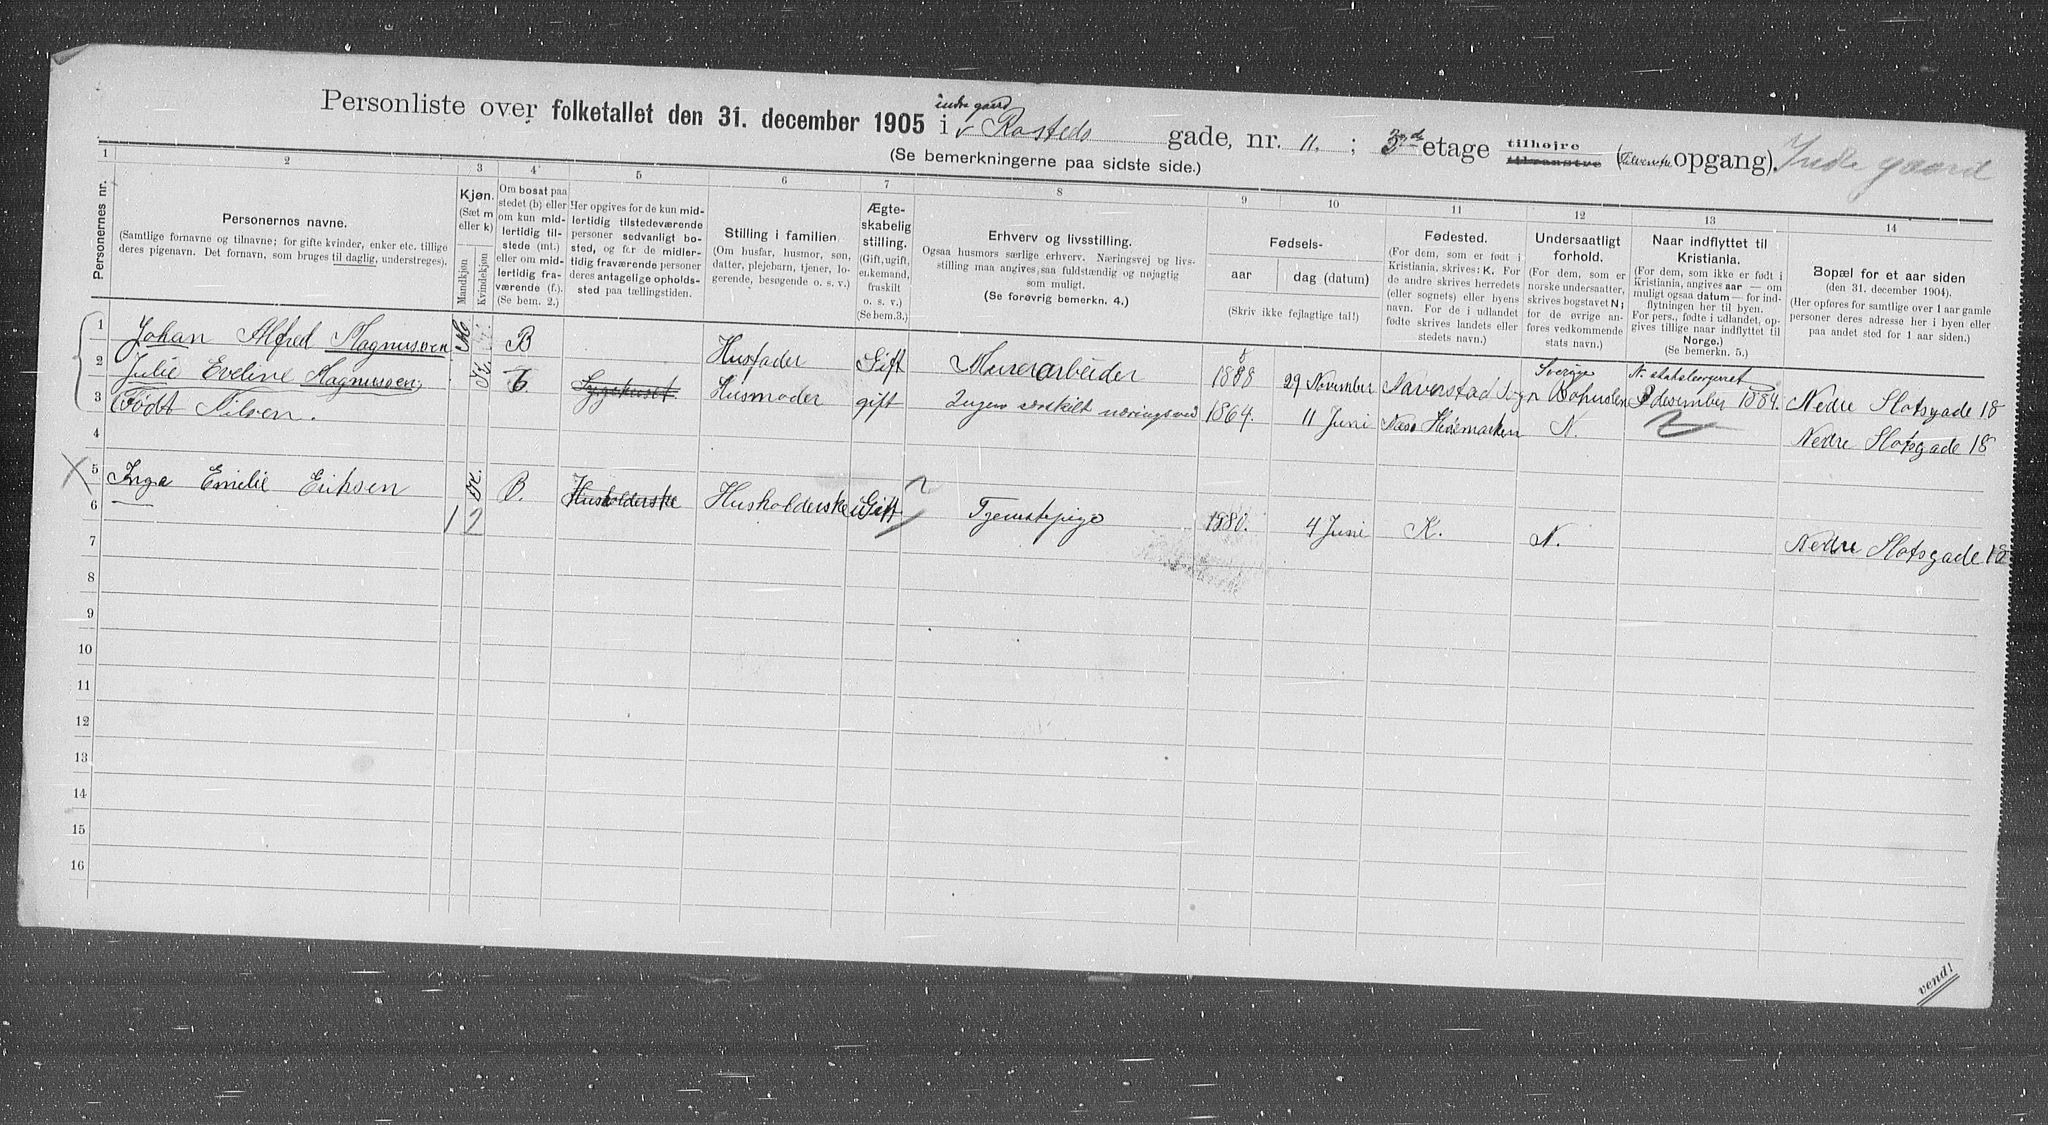 Personliste over folketallet den 31. december 1905 i indre gaard v Rosteds gade, nr. 11. ; 3die etage tilhøjre tilvenstre (Tilvenstre opgang). Indre gaard
(Se bemerkningerne paa sidste side.)
1 2 3 4 5 6 7 8 9 10 11 12 13 14
Personernes nr.
Personernes navne.
(Samtlige fornavne og tilnavne; for gifte kvinder, enker etc. tillige
deres pigenavn. Det fornavn, som bruges til daglig, understreges).
Kjøn.
(Sæt m
eller k)
Mandkjøn
Kvindekjøn
Om bosat paa
stedet (b) eller
om kun mid-
lertidig til-
stede (mt.)
eller om mid-
lertidig fra-
værende (f.).
(Se bem. 2.)
Her opgives for de kun mid-
lertidig tilstedeværende
personer sedvanlig bo-
sted, og for de midler-
tidig fraværende personer
deres antagelige opholds-
sted paa tællingstiden.
Stilling i familien
(Om husfar, husmor, søn,
datter, plejebarn, tjener, lo-
gerende, besøgende o. s. v.)
Ægte-
skabelig
stilling.
(Gift, ugift,
enkemand,
fraskilt
o. s. v.)
(Se bem.3.)
Erhverv og livsstilling.
Ogsaa husmors særlige erhverv. Næringsvej og livs-
stilling maa angives saa fuldstændig og nøjagtig
som muligt.
(Se forøvrig bemerkn. 4.)
Fødsels-
aar
dag (datum)
(Skriv ikke fejlagtige tal!)
Fødested.
(For dem, som er født i
Kristiania, skrives: K. For
de andre skrives herredets
(eller sognets) eller byens
navn. For de i udlandet
fødte skrives landets eller
stedets navn.)
Undersaatligt
forhold.
(For dem, som er
norske undersaatter,
skrives bogstavet N;
for de øvrige an-
føres vedkommende
stats navn.)
Naar indflyttet til
Kristiania.
(For dem, som ikke er født i
Kristiania, angives aar — om
muligt ogsaa datum — for ind-
flytningen her til byen.
For pers., fødte i udlandet, op-
gives tillige naar indflyttet til
Norge.)
(Se bemerkn. 5.)
Bopæl for et aar siden
(den 31. december 1904).
(Her opføres for samtlige over 1 aar gamle
personer deres adresse her i byen eller
paa andet sted for 1 aar siden.)
1 Johan Alfred Magnusen M B Husfader Gift Murerarbeider 29 November Naverstad Sogn Bohuslen Sverige desember 1884. Nedre Slotsgade 18
2 Julie Eveline Magnusen K Sygehuset Husmoder gift Ingen særskilt næringsvei 1864. 11 Juni Næs Hedemarken N. Nedre Slotsgade 18
3 (Født Nilsen.
4
5 Inga Emilie Eriksen K. B. Husholderske Husholderske uGift Tjenestepige 1880. 4 Juni K. N. Nedre Slotsgade 18
6 1 2
7
8
9
10
11
12
13
14
15
16
vend!